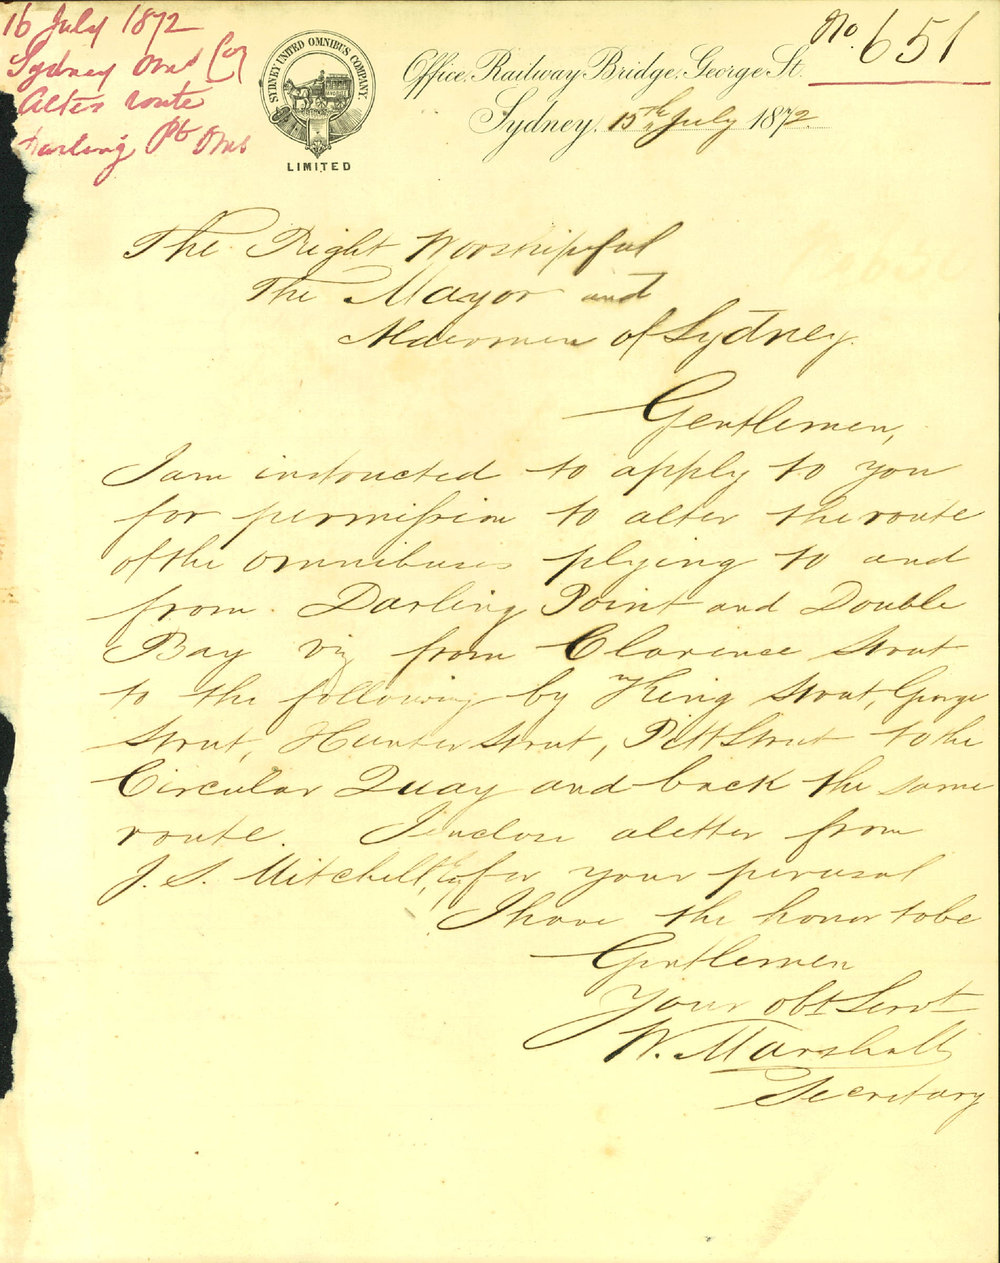 16 July 1872
Sydney Omb Co
Alter route
Darling Pt Omb
SYDNEY UNITED OMNIBUS COMPANY.
LIMITED
No. 651
Office, Railway Bridge, George St.
Sydney, 15th July 1872
The Right Worshipful
The Mayor and
Aldermen of Sydney.
Gentlemen,
I am instructed to apply to you
for permission to alter the route
of the omnibuses plying to and
from Darling Point and Double
Bay viz from Clarence Street
to the following by King Street, George
Street, Hunter Street, Pitt Street to the
Circular Quay and back the same
route. I enclose a letter from
J. S. Mitchell, Esq for your perusal
I have the honor to be
Gentlemen
Your obt Servt
W. Marshall
Secretary